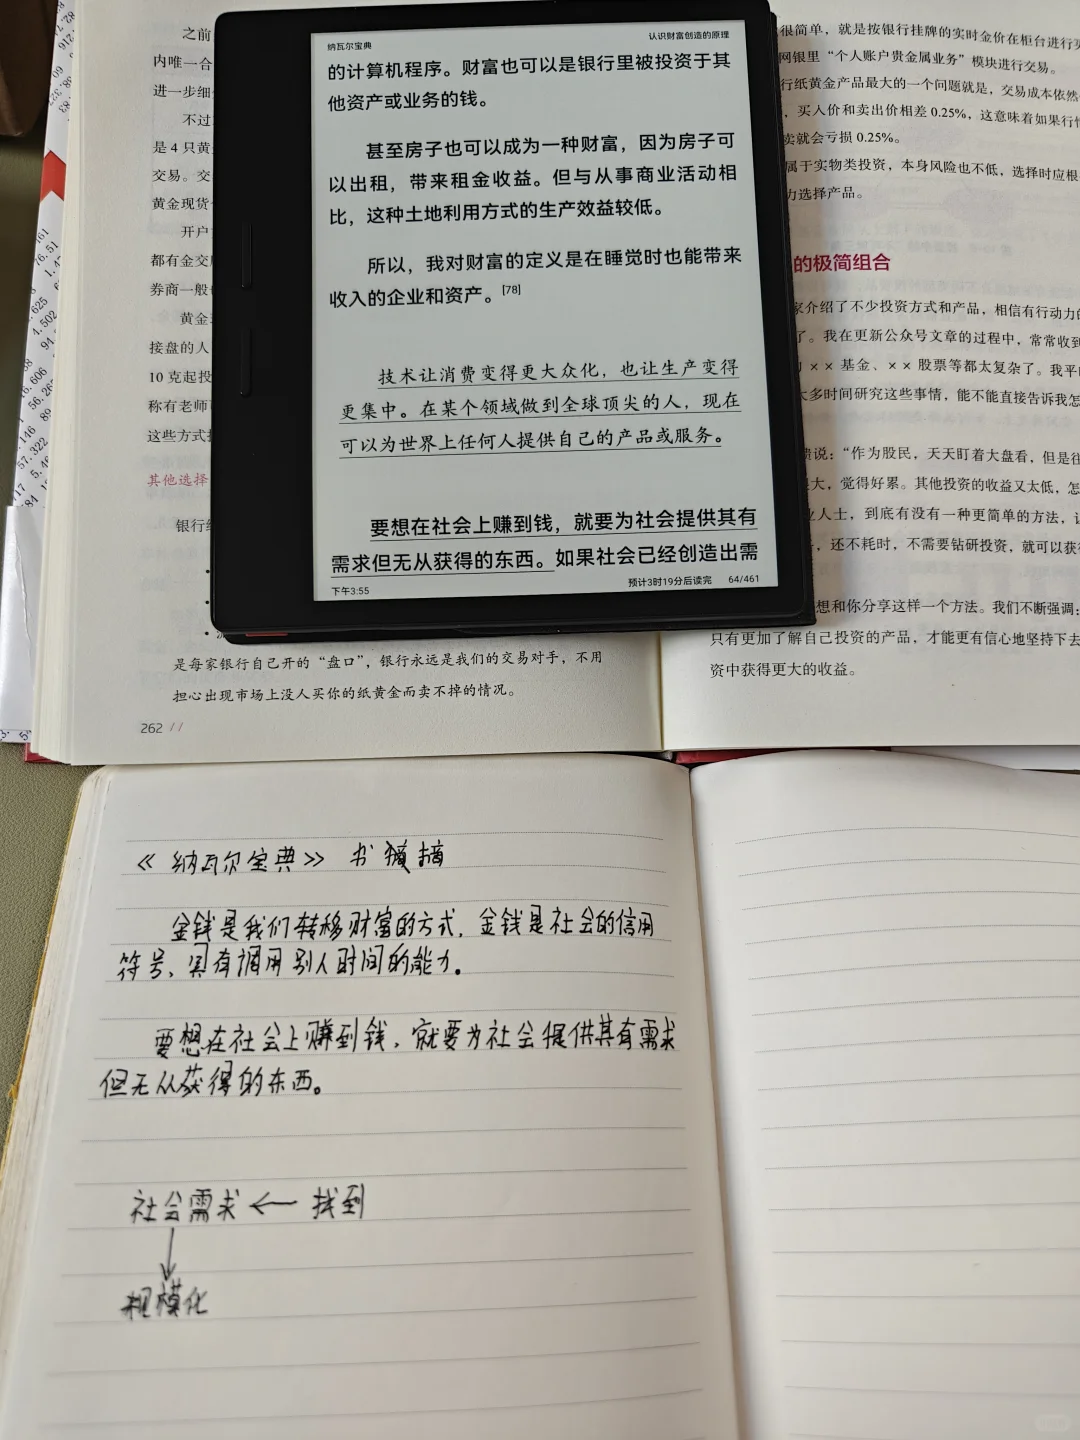 之前
内唯一合
进一步细
不过
是 4 只黄
交易。交
黄金现货
开户
都有金交
券商一般
黄金
接盘的人
10 克起投
称有老师
这些方式
其他选择
银行
是每家银行自己开的“盘口”，银行永远是我们的交易对手，不用
担心出现市场上没人买你的纸黄金而卖不掉的情况。
262 //
纳瓦尔宝典
认识财富创造的原理
的计算机程序。财富也可以是银行里被投资于其
他资产或业务的钱。
甚至房子也可以成为一种财富，因为房子可
以出租，带来租金收益。但与从事商业活动相
比，这种土地利用方式的生产效益较低。
所以，我对财富的定义是在睡觉时也能带来
收入的企业和资产。[78]
技术让消费变得更大众化，也让生产变得
更集中。在某个领域做到全球顶尖的人，现在
可以为世界上任何人提供自己的产品或服务。
要想在社会上赚到钱，就要为社会提供其有
需求但无从获得的东西。如果社会已经创造出需
下午3:55
预计3时19分后读完 64/461
很简单，就是按银行挂牌的实时金价在柜台进行买
网银里“个人账户贵金属业务”模块进行交易。
行纸黄金产品最大的一个问题就是，交易成本依然
，买入价和卖出价相差 0.25%，这意味着如果行情
卖就会亏损 0.25%。
属于实物类投资，本身风险也不低，选择时应根
力选择产品。
的极简组合
家介绍了不少投资方式和产品，相信有行动力的
了。我在更新公众号文章的过程中，常常收到
×× 基金、×× 股票等都太复杂了。我平
太多时间研究这些事情，能不能直接告诉我怎
说：“作为股民，天天盯着大盘看，但是往
大，觉得好累。其他投资的收益又太低，怎
业人士，到底有没有一种更简单的方法，让
，还不耗时，不需要钻研投资，就可以获得
想和你分享这样一个方法。我们不断强调：
只有更加了解自己投资的产品，才能更有信心地坚持下去
资中获得更大的收益。
《纳瓦尔宝典》 书摘
金钱是我们转移财富的方式，金钱是社会的信用
符号、具有调用别人时间的能力。
要想在社会上赚到钱，就要为社会提供其有需求
但无从获得的东西。
社会需求 ← 找到
↓
规模化